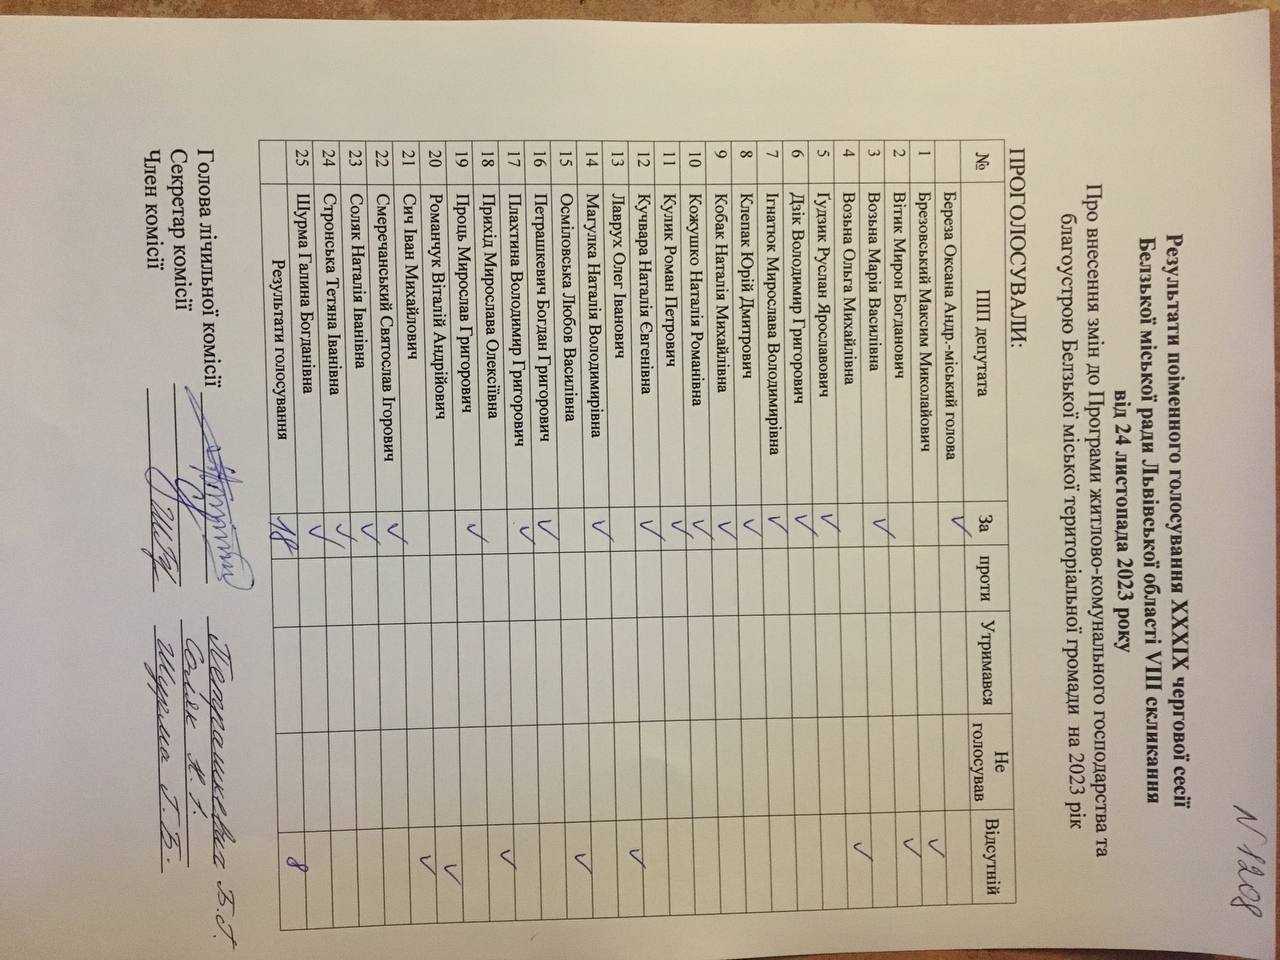 N 1208
Результати поіменного голосування XXXIX чергової сесії
Белзької міської ради Львівської області VIII скликання
від 24 листопада 2023 року
Про внесення змін до Програми житлово-комунального господарства та
благоустрою Белзької міської територіальної громади на 2023 рік
ПРОГОЛОСУВАЛИ:
№ ПІП депутата За проти Утримався Не голосував Відсутній
Береза Оксана Андр.-міський голова ✓
1 Брезовський Максим Миколайович ✓
2 Вітик Мирон Богданович ✓
3 Возьна Марія Василівна ✓
4 Возьна Ольга Михайлівна ✓
5 Гудзик Руслан Ярославович ✓
6 Дзік Володимир Григорович ✓
7 Ігнатюк Мирослава Володимирівна ✓
8 Клепак Юрій Дмитрович ✓
9 Кобак Наталія Михайлівна ✓
10 Кожушко Наталія Романівна ✓
11 Кулик Роман Петрович ✓
12 Кучвара Наталія Євгенівна ✓
13 Лаврух Олег Іванович ✓
14 Магулка Наталія Володимирівна ✓
15 Осміловська Любов Василівна ✓
16 Петрашкевич Богдан Григорович ✓
17 Плахтина Володимир Григорович ✓
18 Прихід Мирослава Олексіївна ✓
19 Проць Мирослав Григорович ✓
20 Романчук Віталій Андрійович ✓
21 Сич Іван Михайлович ✓
22 Смеречанський Святослав Ігорович ✓
23 Соляк Наталія Іванівна ✓
24 Стронська Тетяна Іванівна ✓
25 Шурма Галина Богданівна ✓
Результати голосування 18 8
Голова лічильної комісії Петрашкевич Б.Г.
Секретар комісії Соляк Н.І.
Член комісії Шурма Г.Б.